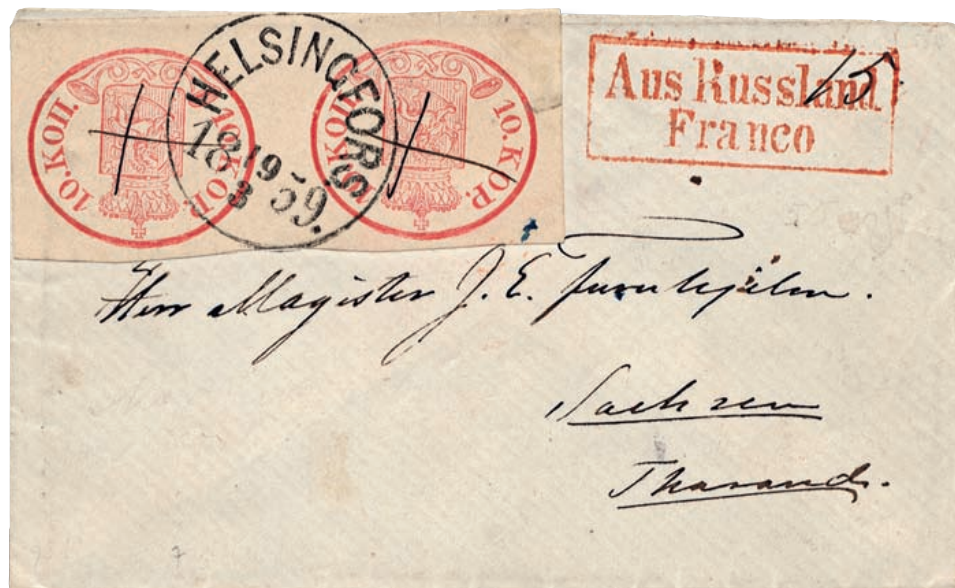 10. КОП. 10. KOP.
10. КОП. 10. KOP.
HELSINGFORS
1859.
19
3
Aus Russland
Franco
15
Herr Magister J. E. Furuhjelm.
Sachsen
Tharand.